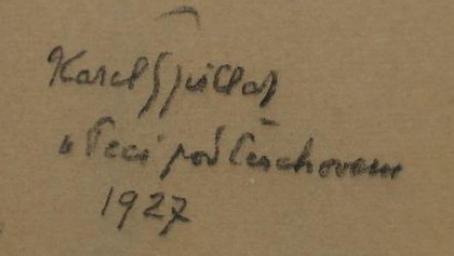 Karel Špillar
v Peci pod Čerchovem
1927